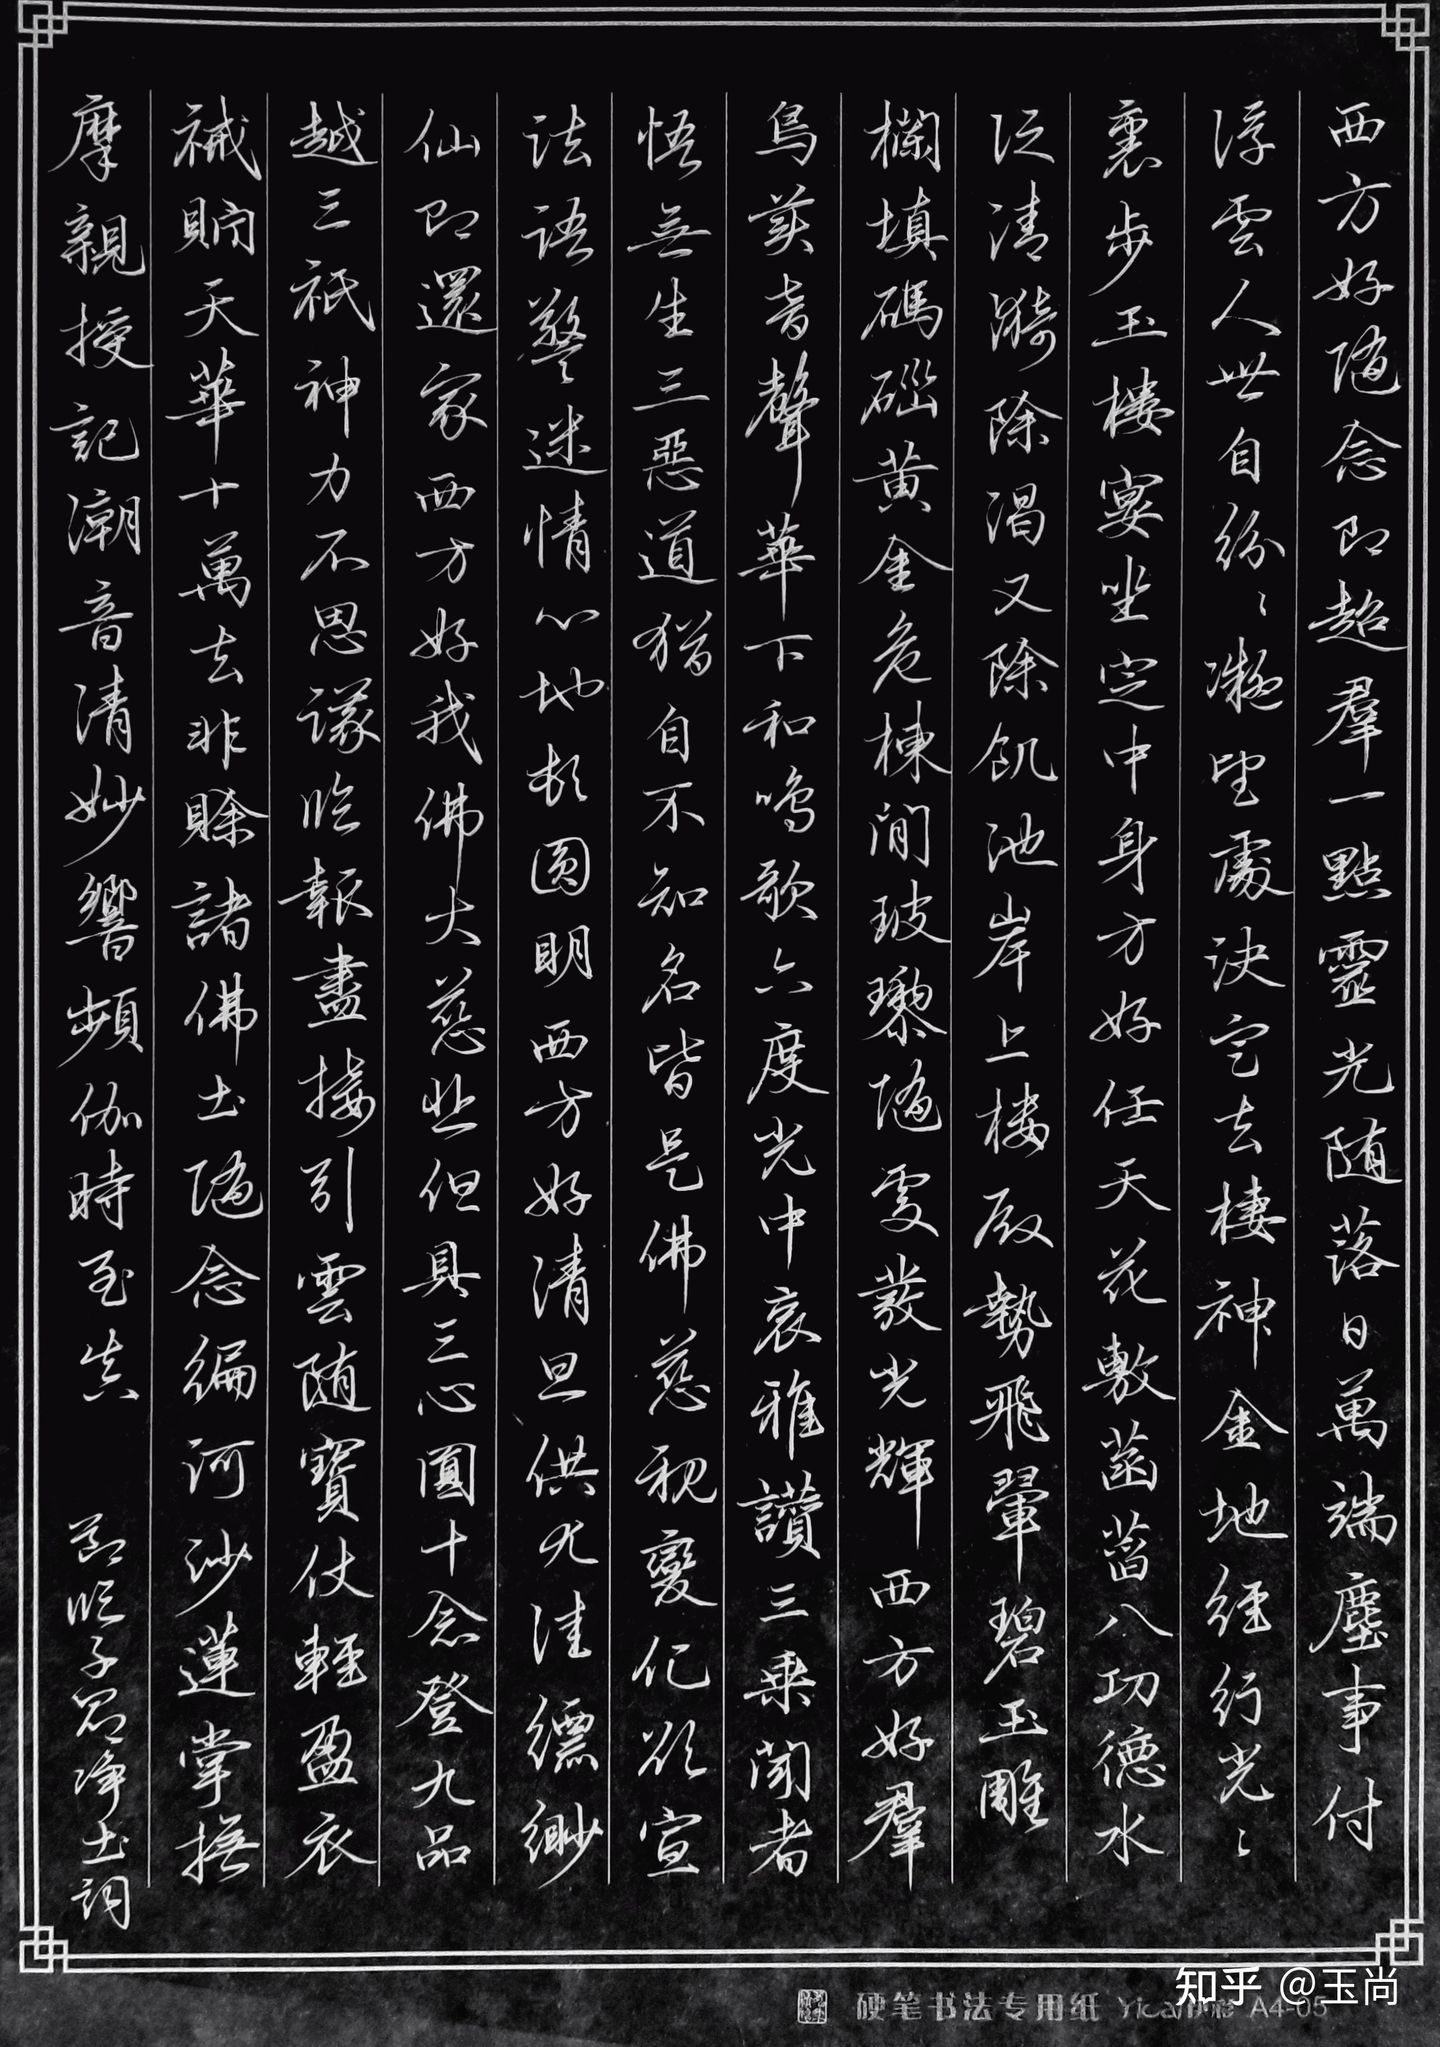 西方好随念即超羣一點靈光随落日萬端塵事付
浮雲人世自紛〻凝望處決定去棲神金地經行光〻
裏步玉樓宴坐定中身方好任天花敷菡萏八功德水
泛清漪除渴又除飢池岸上樓殿勢飛翬碧玉雕
欄填碼磘黄金危棟間玻瓈隨處發光輝西方好羣
鳥美音聲華下和鳴歌六度光中哀雅讃三乘聞者
悟無生三惡道猶自不知名皆是佛慈親變化欲宣
法語警迷情心地頓圓明西方好清旦供尤佳縹緲
仙即還家西方好我佛大慈悲但具三心圓十念登九品
越三祇神力不思議臨報盡接引雲随寶仗輕盈衣
祴貯天華十萬去非賒諸佛土隨念徧河沙蓮掌撫
摩親授記潮音清妙響頻伽時至真
節臨子昂淨土詞
知乎 @玉尚
硬笔书法专用纸 A4-05